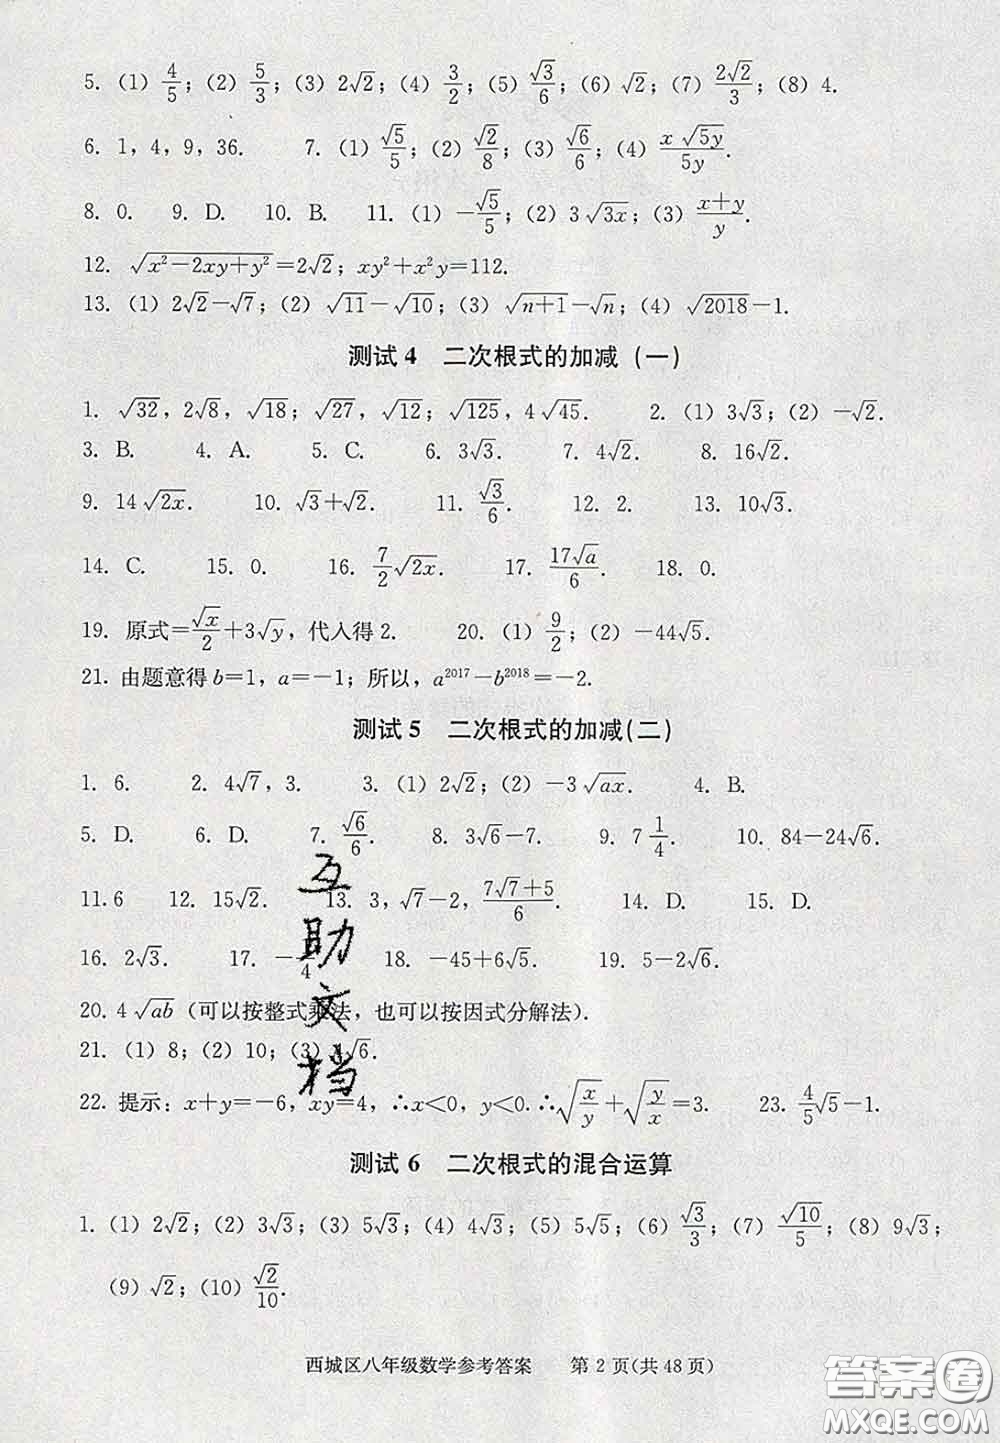 5. (1) 4/5; (2) 5/3; (3) 2√2; (4) 3/2; (5) √3/6; (6) √2; (7) 2√2/3; (8) 4.
6. 1, 4, 9, 36. 7. (1) √5/5; (2) √2/8; (3) √6/6; (4) x√(5y)/5y.
8. 0. 9. D. 10. B. 11. (1) -√5/5; (2) 3√(3x); (3) (x+y)/y.
12. √(x²-2xy+y²)=2√2; xy²+x²y=112.
13. (1) 2√2-√7; (2) √11-√10; (3) √(n+1)-√n; (4) √2018-1.
测试 4 二次根式的加减 (一)
1. √32, 2√8, √18; √27, √12; √125, 4√45. 2. (1) 3√3; (2) -√2.
3. B. 4. A. 5. C. 6. 3√3. 7. 4√2. 8. 16√2.
9. 14√(2x). 10. √3+√2. 11. √3/6. 12. 2. 13. 10√3.
14. C. 15. 0. 16. 7/2√(2x). 17. 17√a/6. 18. 0.
19. 原式=√x/2+3√y, 代入得 2. 20. (1) 9/2; (2) -44√5.
21. 由题意得 b=1, a=-1; 所以, a²⁰¹⁷-b²⁰¹⁸=-2.
测试 5 二次根式的加减(二)
1. 6. 2. 4√7, 3. 3. (1) 2√2; (2) -3√(ax). 4. B.
5. D. 6. D. 7. √6/6. 8. 3√6-7. 9. 7 1/4. 10. 84-24√6.
11.6 12. 15√2. 13. 3, √7-2, (7√7+5)/6. 14. D. 15. D.
16. 2√3. 17. - /4 18. -45+6√5. 19. 5-2√6.
20. 4√(ab) (可以按整式乘法, 也可以按因式分解法).
21. (1) 8; (2) 10; (3) √6.
22. 提示: x+y=-6, xy=4, ∴x<0, y<0. ∴√(x/y)+√(y/x)=3. 23. 4/5√5-1.
测试 6 二次根式的混合运算
1. (1) 2√2; (2) 3√3; (3) 5√3; (4) 4√3; (5) 5√5; (6) √3/3; (7) √10/5; (8) 9√3;
(9) √2; (10) √2/10.
西城区八年级数学参考答案 第 2 页(共 48 页)
互助文档
答案圈
MXQE.COM